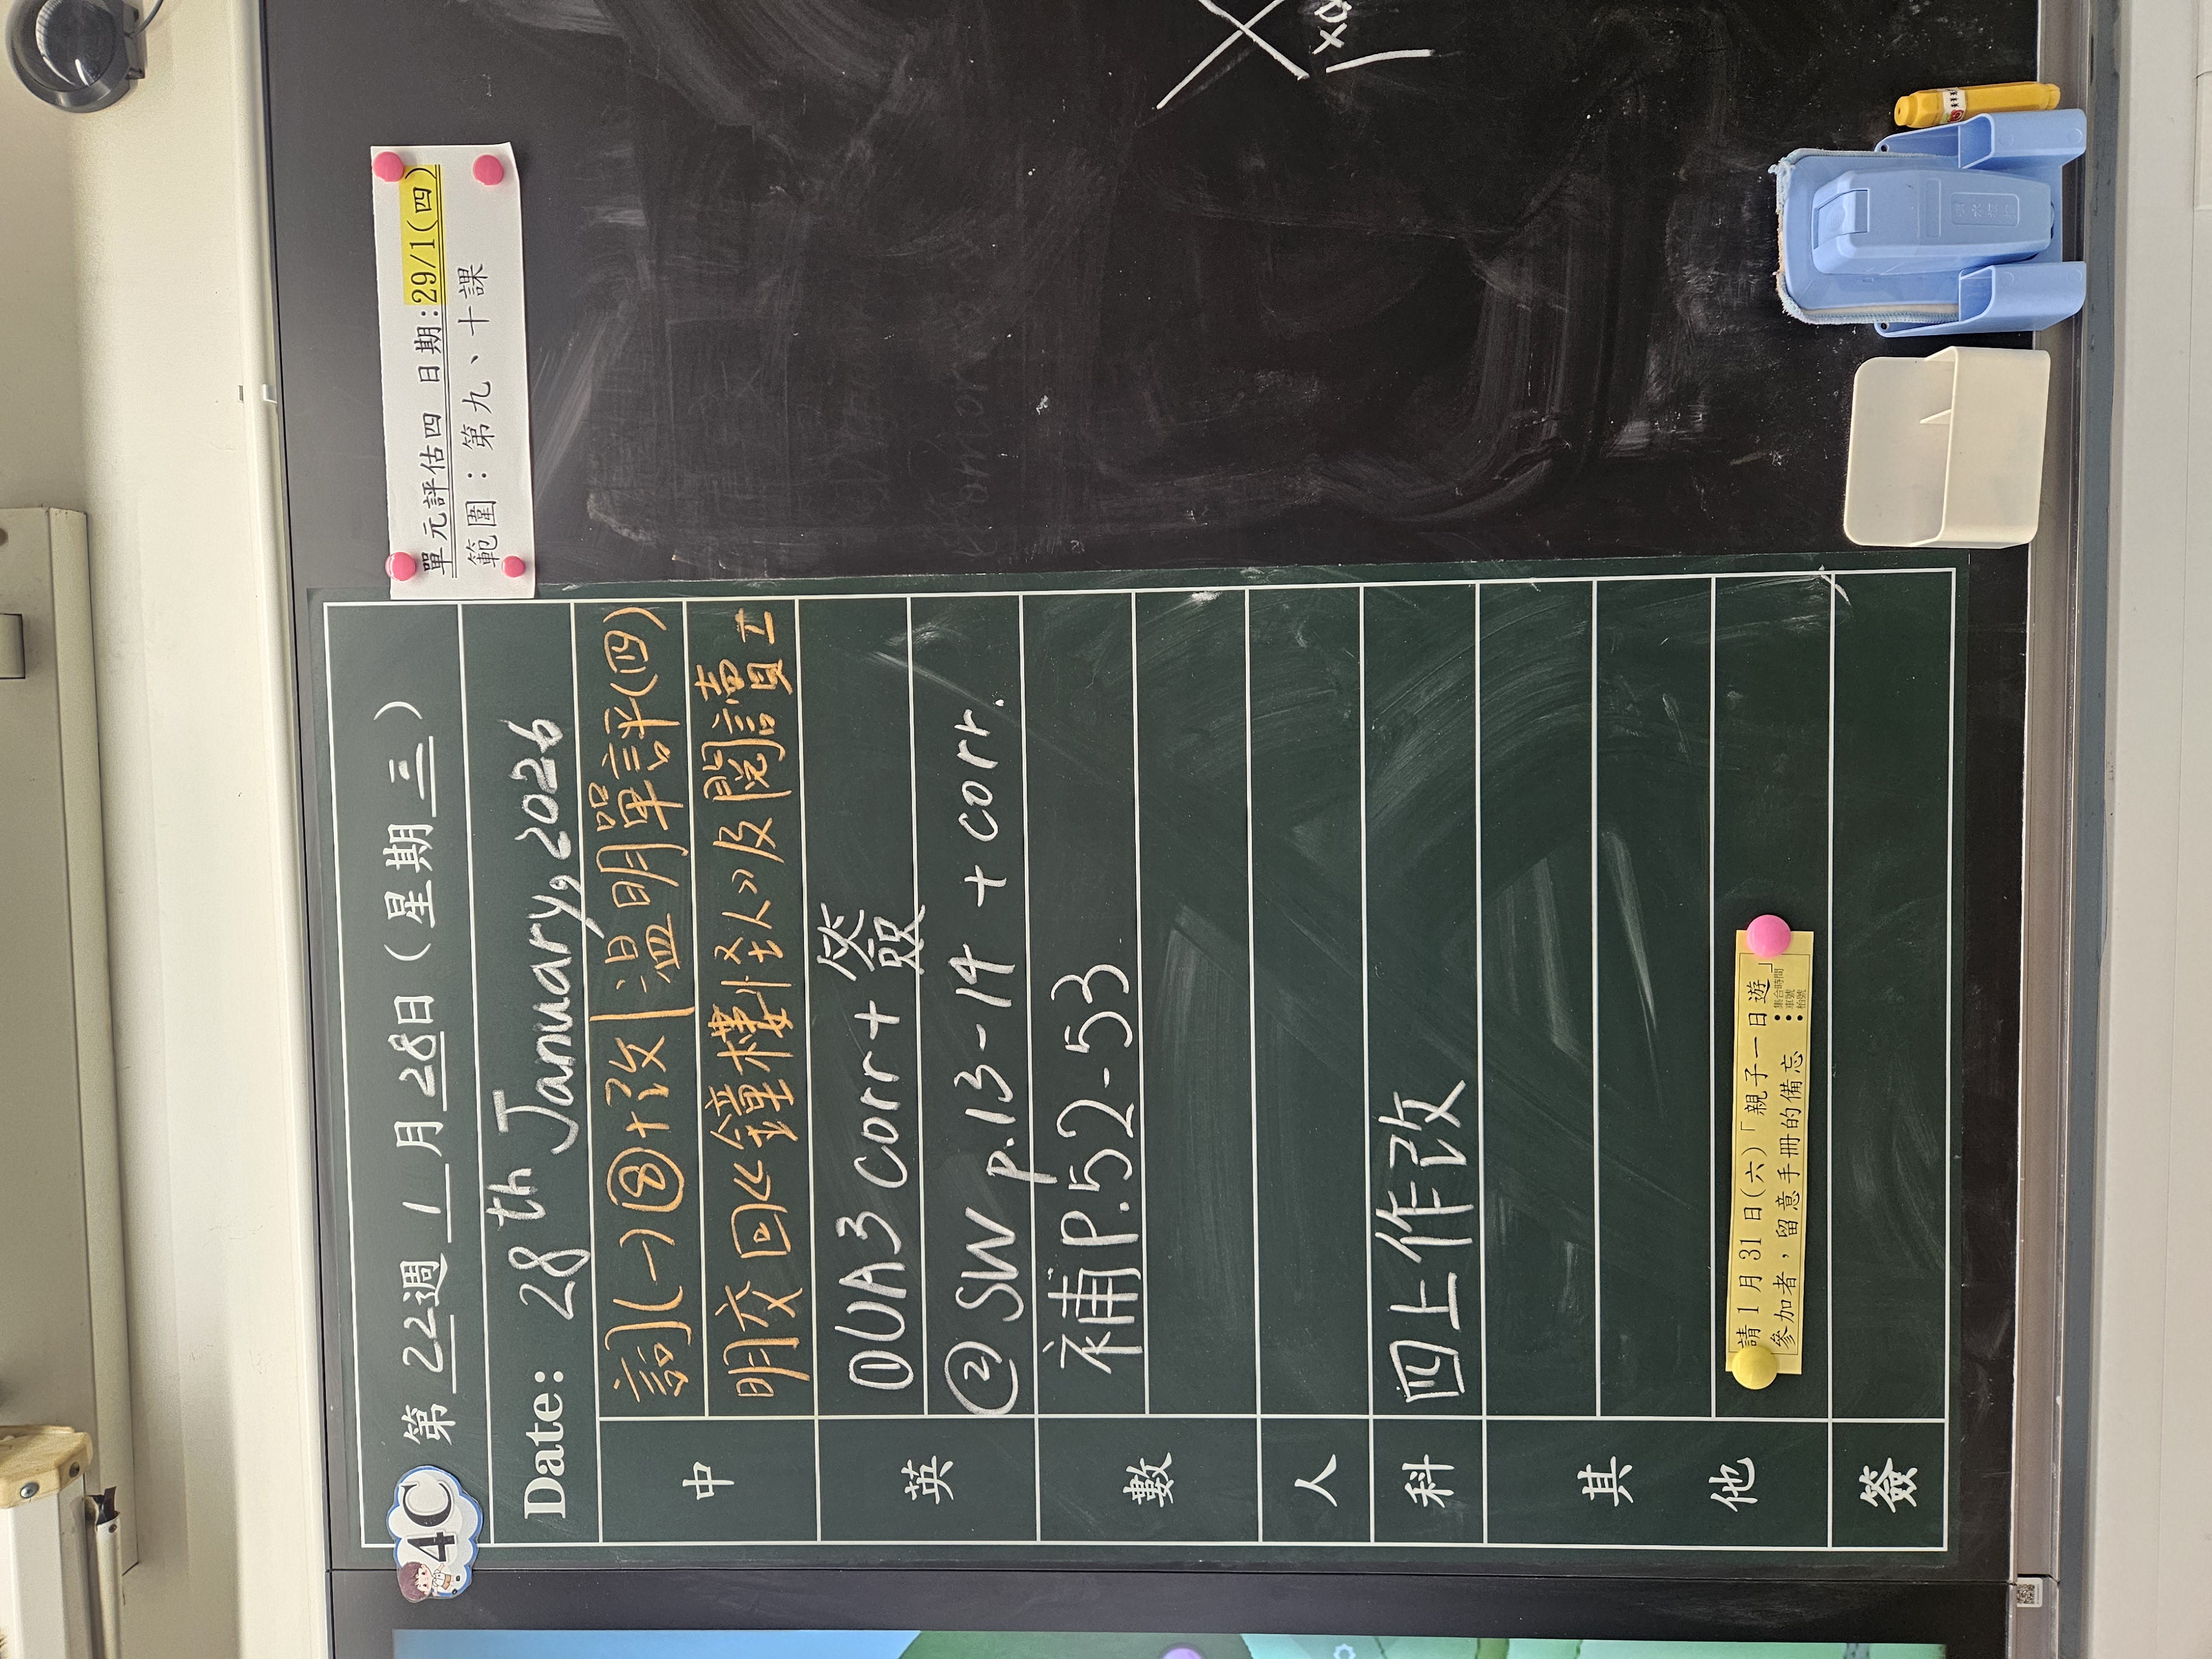 4C 第 22 週 1 月 28 日 (星期 三)
Date: 28th January, 2026
中
詞(一)⑧+改 | 溫明單評(四)
明交回《鐘樓怪人》及閱讀
英
①UA3 corr + 簽
② SW p.13-14 + corr.
數
補P.52-53
人
科
四上作改
其他
請1月31日(六)「親子一日遊」
參加者,留意手冊的備忘
集合時間
車號
枱號
簽
單元評估四 日期:29/1(四)
範圍:第九、十課